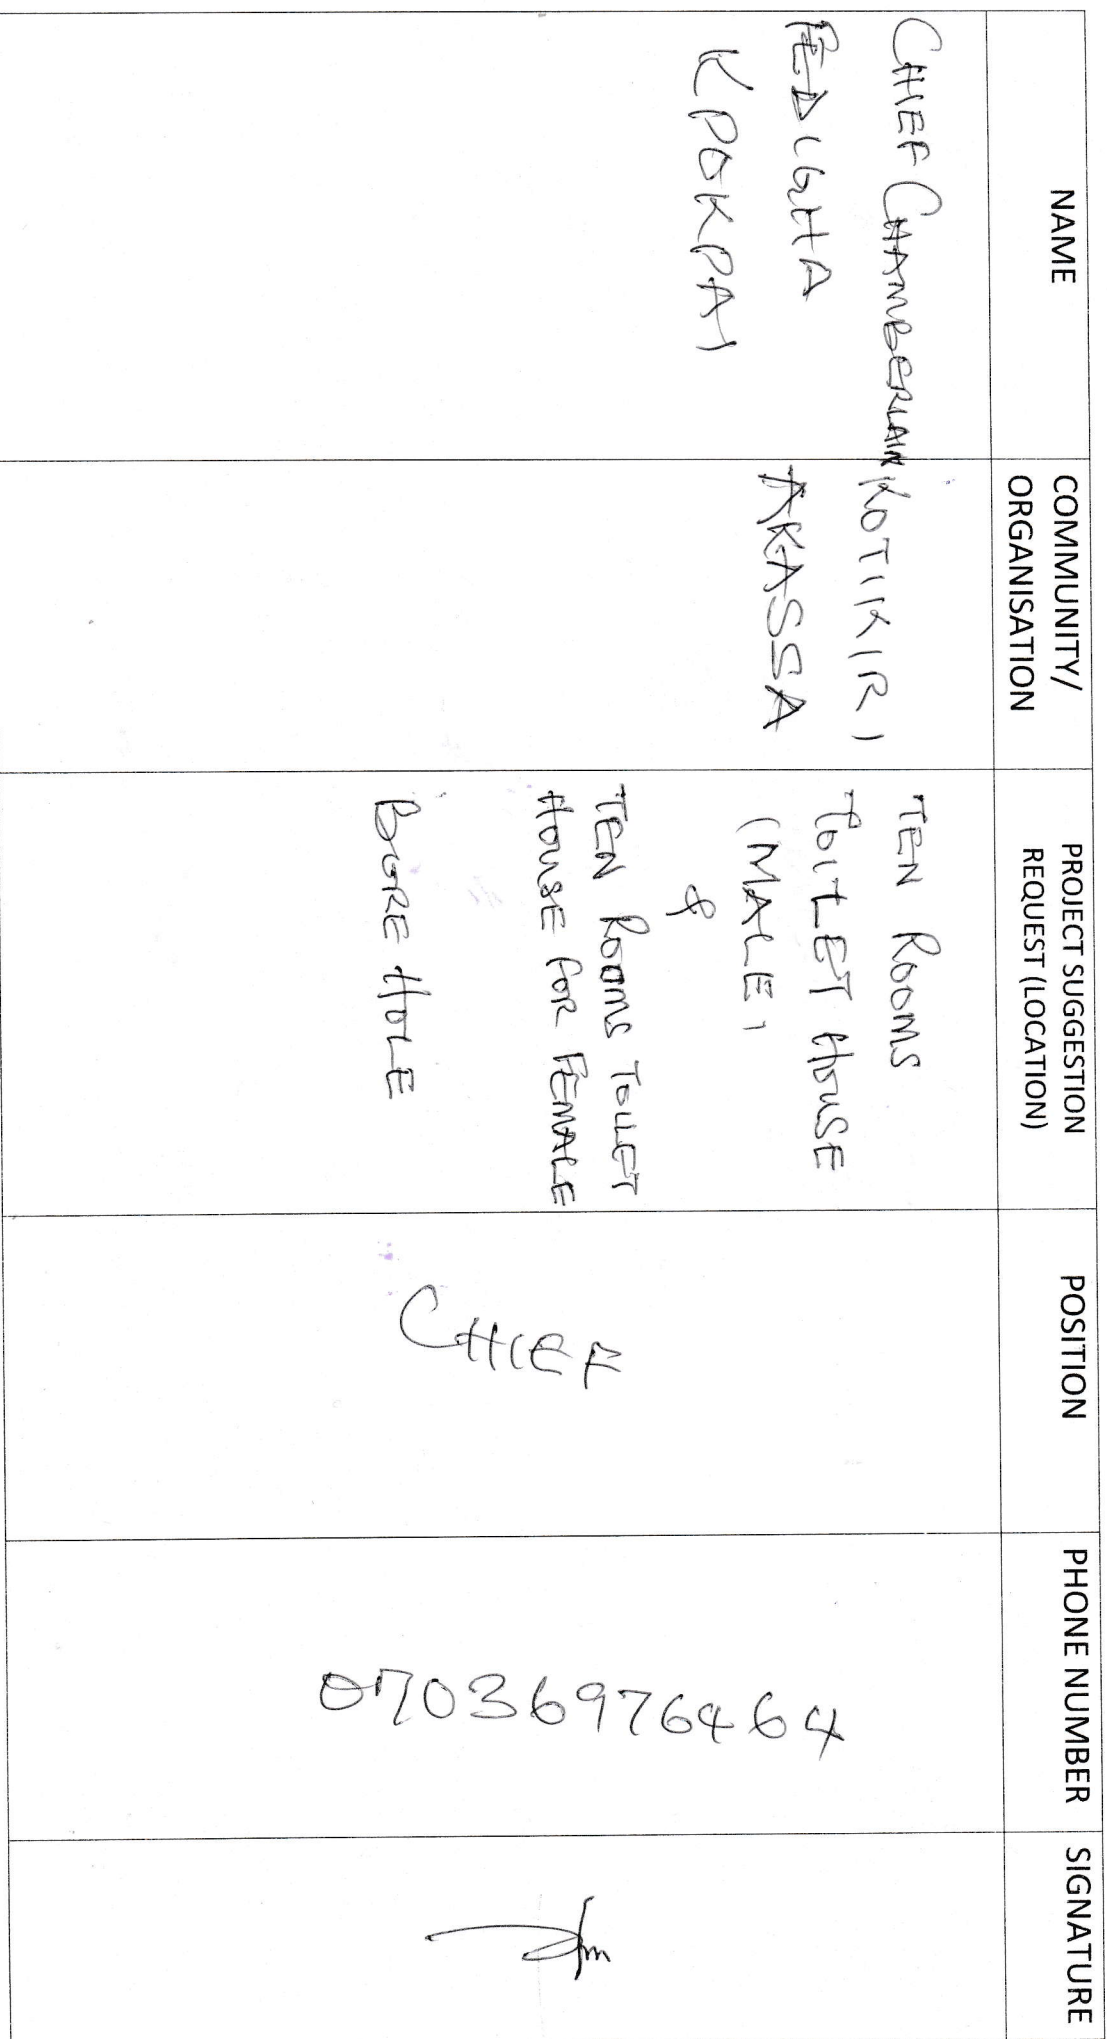 NAME
COMMUNITY/
ORGANISATION
PROJECT SUGGESTION
REQUEST (LOCATION)
POSITION
PHONE NUMBER
SIGNATURE
CHIEF CHAMBERLAIN
FEDIGHA
KPOKPAI
KOTIKIRI
AKASSA
TEN ROOMS
TOILET HOUSE
(MALE)
&
TEN ROOMS TOILET
HOUSE FOR FEMALE
BORE HOLE
CHIEF
07036976464